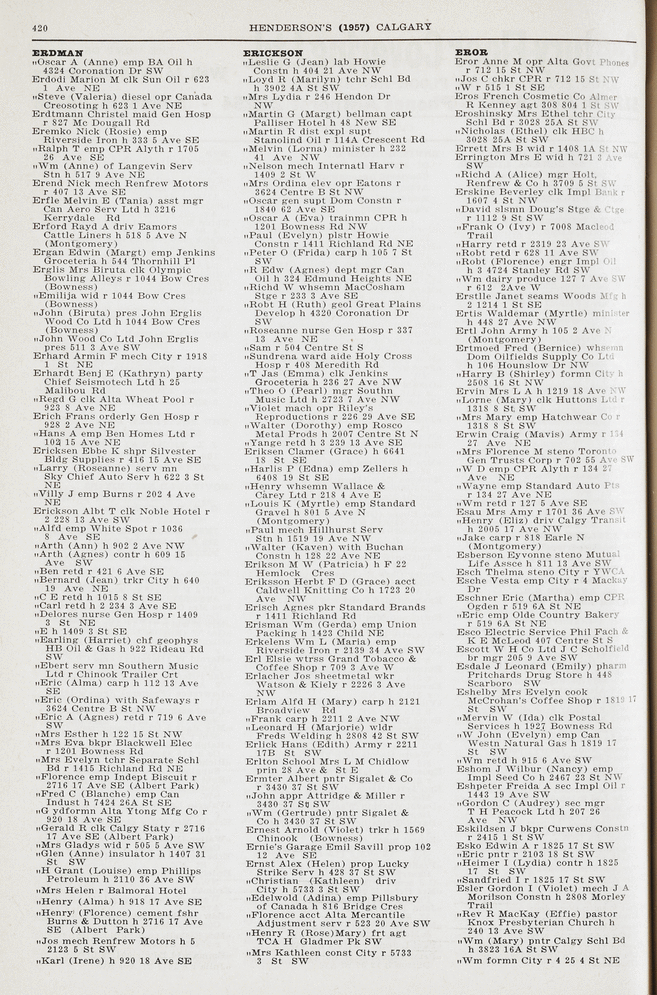 420
HENDERSON'S (1957) CALGARY
ERDMAN
"Oscar A (Anne) emp BA Oil h
4324 Coronation Dr SW
Erdodi Marion M clk Sun Oil r 623
1 Ave NE
"Steve (Valeria) diesel opr Canada
Creosoting h 623 1 Ave NE
Erdtmann Christel maid Gen Hosp
r 827 Mc Dougall Rd
Eremko Nick (Rosie) emp
Riverside Iron h 333 5 Ave SE
"Ralph T emp CPR Alyth r 1705
26 Ave SE
"Wm (Anne) of Langevin Serv
Stn h 517 9 Ave NE
Erend Nick mech Renfrew Motors
r 407 13 Ave SE
Erfle Melvin E (Tania) asst mgr
Can Aero Serv Ltd h 3216
Kerrydale Rd
Erford Rayd A driv Eamors
Cattle Liners h 518 5 Ave N
(Montgomery)
Ergan Edwin (Margt) emp Jenkins
Groceteria h 544 Thornhill Pl
Erglis Mrs Biruta clk Olympic
Bowling Alleys r 1044 Bow Cres
(Bowness)
"Emilija wid r 1044 Bow Cres
(Bowness)
"John (Biruta) pres John Erglis
Wood Co Ltd h 1044 Bow Cres
(Bowness)
"John Wood Co Ltd John Erglis
pres 511 3 Ave SW
Erhard Armin F mech City r 1918
1 St NE
Erhardt Benj E (Kathryn) party
Chief Seismotech Ltd h 25
Malibou Rd
"Regd G clk Alta Wheat Pool r
923 8 Ave NE
Erich Frans orderly Gen Hosp r
928 2 Ave NE
"Hans A emp Ben Homes Ltd r
102 15 Ave NE
Ericksen Ebbe K shpr Silvester
Bldg Supplies r 416 15 Ave SE
"Larry (Roseanne) serv mn
Sky Chief Auto Serv h 622 3 St
NE
"Willy J emp Burns r 202 4 Ave
NE
Erickson Albt T clk Noble Hotel r
2 228 13 Ave SW
"Alfd emp White Spot r 1036
8 Ave SE
"Arth (Ann) h 902 2 Ave NW
"Arth (Agnes) contr h 609 15
Ave SW
"Ben retd r 421 6 Ave SE
"Bernard (Jean) trkr City h 640
19 Ave NE
"C E retd h 1015 8 St SE
"Carl retd h 2 234 3 Ave SE
"Delores nurse Gen Hosp r 1409
3 St NE
"E h 1409 3 St SE
"Earling (Harriet) chf geophys
HB Oil & Gas h 922 Rideau Rd
SW
"Ebert serv mn Southern Music
Ltd r Chinook Trailer Crt
"Eric (Alma) carp h 112 13 Ave
SE
"Eric (Ordina) with Safeways r
3624 Centre B St NW
"Eric A (Agnes) retd r 719 6 Ave
SW
"Mrs Esther h 122 15 St NW
"Mrs Eva bkpr Blackwell Elec
r 1201 Bowness Rd
"Mrs Evelyn tchr Separate Schl
Bd r 1415 Richland Rd NE
"Florence emp Indept Biscuit r
2716 17 Ave SE (Albert Park)
"Fred C (Blanche) emp Can
Indust h 7424 26A St SE
"G ydformn Alta Ytong Mfg Co r
920 18 Ave SE
"Gerald R clk Calgy Staty r 2716
17 Ave SE (Albert Park)
"Mrs Gladys wid r 505 5 Ave SW
"Glen (Anne) insulator h 1407 31
St SW
"H Grant (Louise) emp Phillips
Petroleum h 2110 36 Ave SW
"Mrs Helen r Balmoral Hotel
"Henry (Alma) h 918 17 Ave SE
"Henry (Florence) cement fshr
Burns & Dutton h 2716 17 Ave
SE (Albert Park)
"Jos mech Renfrew Motors h 5
2123 5 St SW
"Karl (Irene) h 920 18 Ave SE
ERICKSON
"Leslie G (Jean) lab Howie
Constn h 404 21 Ave NW
"Loyd R (Marilyn) tchr Schl Bd
h 3902 4A St SW
"Mrs Lydia r 246 Hendon Dr
NW
"Martin G (Margt) bellman capt
Palliser Hotel h 48 New SE
"Martin R dist expl supt
Stanolind Oil r 114A Crescent Rd
"Melvin (Lorna) minister h 232
41 Ave NW
"Nelson mech Internatl Harv r
1409 2 St W
"Mrs Ordina elev opr Eatons r
3624 Centre B St NW
"Oscar gen supt Dom Constn r
1840 62 Ave SE
"Oscar A (Eva) trainmn CPR h
1201 Bowness Rd NW
"Paul (Evelyn) plstr Howie
Constn r 1411 Richland Rd NE
"Peter O (Frida) carp h 105 7 St
SW
"R Edw (Agnes) dept mgr Can
Oil h 324 Edmund Heights NE
"Richd W whsemn MacCosham
Stge r 233 3 Ave SE
"Robt H (Ruth) geol Great Plains
Develop h 4320 Coronation Dr
SW
"Roseanne nurse Gen Hosp r 337
13 Ave NE
"Sam r 504 Centre St S
"Sundrena ward aide Holy Cross
Hosp r 408 Meredith Rd
"T Jas (Emma) clk Jenkins
Groceteria h 236 27 Ave NW
"Theo O (Pearl) mgr Southn
Music Ltd h 2723 7 Ave NW
"Violet mach opr Riley's
Reproductions r 226 29 Ave SE
"Walter (Dorothy) emp Rosco
Metal Prods h 2007 Centre St N
"Yange retd h 3 239 13 Ave SE
Eriksen Clamer (Grace) h 6641
18 St SE
"Harlis P (Edna) emp Zellers h
6408 19 St SE
"Henry whsemn Wallace &
Carey Ltd r 218 4 Ave E
"Louis K (Myrtle) emp Standard
Gravel h 801 5 Ave N
(Montgomery)
"Paul mech Hillhurst Serv
Stn h 1519 19 Ave NW
"Walter (Kaven) with Buchan
Constn h 128 22 Ave NE
Erikson M W (Patricia) h F 22
Hemlock Cres
Eriksson Herbt F D (Grace) acct
Caldwell Knitting Co h 1723 20
Ave NW
Erisch Agnes pkr Standard Brands
r 1411 Richland Rd
Erisman Wm (Gerda) emp Union
Packing h 1423 Child NE
Erkelens Wm L (Maria) emp
Riverside Iron r 2139 34 Ave SW
Erl Elsie wtrss Grand Tobacco &
Coffee Shop r 709 3 Ave W
Erlacher Jos sheetmetal wkr
Watson & Kiely r 2226 3 Ave
NW
Erlam Alfd H (Mary) carp h 2121
Broadview Rd
"Frank carp h 2211 2 Ave NW
"Leonard H (Marjorie) wldr
Freds Welding h 2808 42 St SW
Erlick Hans (Edith) Army r 2211
17B St SW
Erlton School Mrs L M Chidlow
prin 28 Ave & St E
Ermter Albert pntr Sigalet & Co
r 3430 37 St SW
"John appr Attridge & Miller r
3430 37 St SW
"Wm (Gertrude) pntr Sigalet &
Co h 3430 37 St SW
Ernest Arnold (Violet) trkr h 1569
Chinook (Bowness)
Ernie's Garage Emil Savill prop 102
12 Ave SE
Ernst Alex (Helen) prop Lucky
Strike Serv h 428 37 St SW
"Christian (Kathleen) driv
City h 5733 3 St SW
"Edelwold (Adina) emp Pillsbury
of Canada h 816 Bridge Cres
"Florence acct Alta Mercantile
Adjustment serv r 523 20 Ave SW
"Henry R (Rose)Mary) frt agt
TCA H Gladmer Pk SW
"Mrs Kathleen const City r 5733
3 St SW
EROR
Eror Anne M opr Alta Govt Phones
r 712 15 St NW
"Jos C chkr CPR r 712 15 St NW
"W r 515 1 St SE
Eros French Cosmetic Co Almer
R Kenney agt 308 804 1 St SW
Eroshinsky Mrs Ethel tchr City
Schl Bd r 3028 25A St SW
"Nicholas (Ethel) clk HBC h
3028 25A St SW
Errett Mrs B wid r 1408 1A St NW
Errington Mrs E wid h 721 3 Ave
SW
"Richd A (Alice) mgr Holt,
Renfrew & Co h 3709 5 St SW
Erskine Beverley clk Impl Bank r
1607 4 St NW
"David slsmn Doug's Stge & Ctge
r 1112 9 St SW
"Frank O (Ivy) r 7008 Macleod
Trail
"Harry retd r 2319 23 Ave SW
"Robt retd r 628 11 Ave SW
"Robt (Florence) engr Impl Oil
h 3 4724 Stanley Rd SW
"Wm dairy produce 127 7 Ave SW
r 612 2Ave W
Erstlle Janet seams Woods Mfg h
2 1214 1 St SE
Ertis Waldemar (Myrtle) minister
h 448 27 Ave NW
Ertl John Army h 105 2 Ave N
(Montgomery)
Ertmoed Fred (Bernice) whsemn
Dom Oilfields Supply Co Ltd
h 106 Hounslow Dr NW
"Harry B (Shirley) formn City h
2508 16 St NW
Ervin Mrs L A h 1219 18 Ave NW
"Lorne (Mary) clk Huttons Ltd r
1318 8 St SW
"Mrs Mary emp Hatchwear Co r
1318 8 St SW
Erwin Craig (Mavis) Army r 134
27 Ave NE
"Mrs Florence M steno Toronto
Gen Trusts Corp r 702 55 Ave SW
"W D emp CPR Alyth r 134 27
Ave NE
"Wayne emp Standard Auto Pts
r 134 27 Ave NE
"Wm retd r 127 5 Ave SE
Esau Mrs Amy r 1701 36 Ave SW
"Henry (Eliz) driv Calgy Transit
h 2005 17 Ave NW
"Jake carp r 818 Earle N
(Montgomery)
Esberson Eyvonne steno Mutual
Life Assce h 811 13 Ave SW
Esch Thelma steno City r YWCA
Esche Vesta emp City r 4 Mackay
Dr
Eschner Eric (Martha) emp CPR
Ogden r 519 6A St NE
"Eric emp Olde Country Bakery
r 519 6A St NE
Esco Electric Service Phil Fach &
K E McLeod 407 Centre St S
Escott W H Co Ltd J C Scholfield
br mgr 205 9 Ave SW
Esdale J Leonard (Emily) pharm
Pritchards Drug Store h 448
Scarboro SW
Eshelby Mrs Evelyn cook
McCrohan's Coffee Shop r 1819 17
St SW
"Mervin W (Ida) clk Postal
Services h 1927 Bowness Rd
"W John (Evelyn) emp Can
Westn Natural Gas h 1819 17
St SW
"Wm retd h 915 6 Ave SW
Eshom J Wilbur (Nancy) emp
Impl Seed Co h 2467 23 St NW
Eshpeter Freida A sec Impl Oil r
1443 19 Ave SW
"Gordon C (Audrey) sec mgr
T H Peacock Ltd h 207 26
Ave NW
Eskildsen J bkpr Curwens Constn
r 2415 1 St SW
Esko Edwin A r 1825 17 St SW
"Eric pntr r 2103 18 St SW
"Heimer I (Lydia) contr h 1825
17 St SW
"Sandfried I r 1825 17 St SW
Esler Gordon I (Violet) mech J A
Morilson Constn h 2808 Morley
Trail
"Rev R MacKay (Effie) pastor
Knox Presbyterian Church h
240 13 Ave SW
"Wm (Mary) pntr Calgy Schl Bd
h 3823 16A St SW
"Wm formn City r 4 25 4 St NE